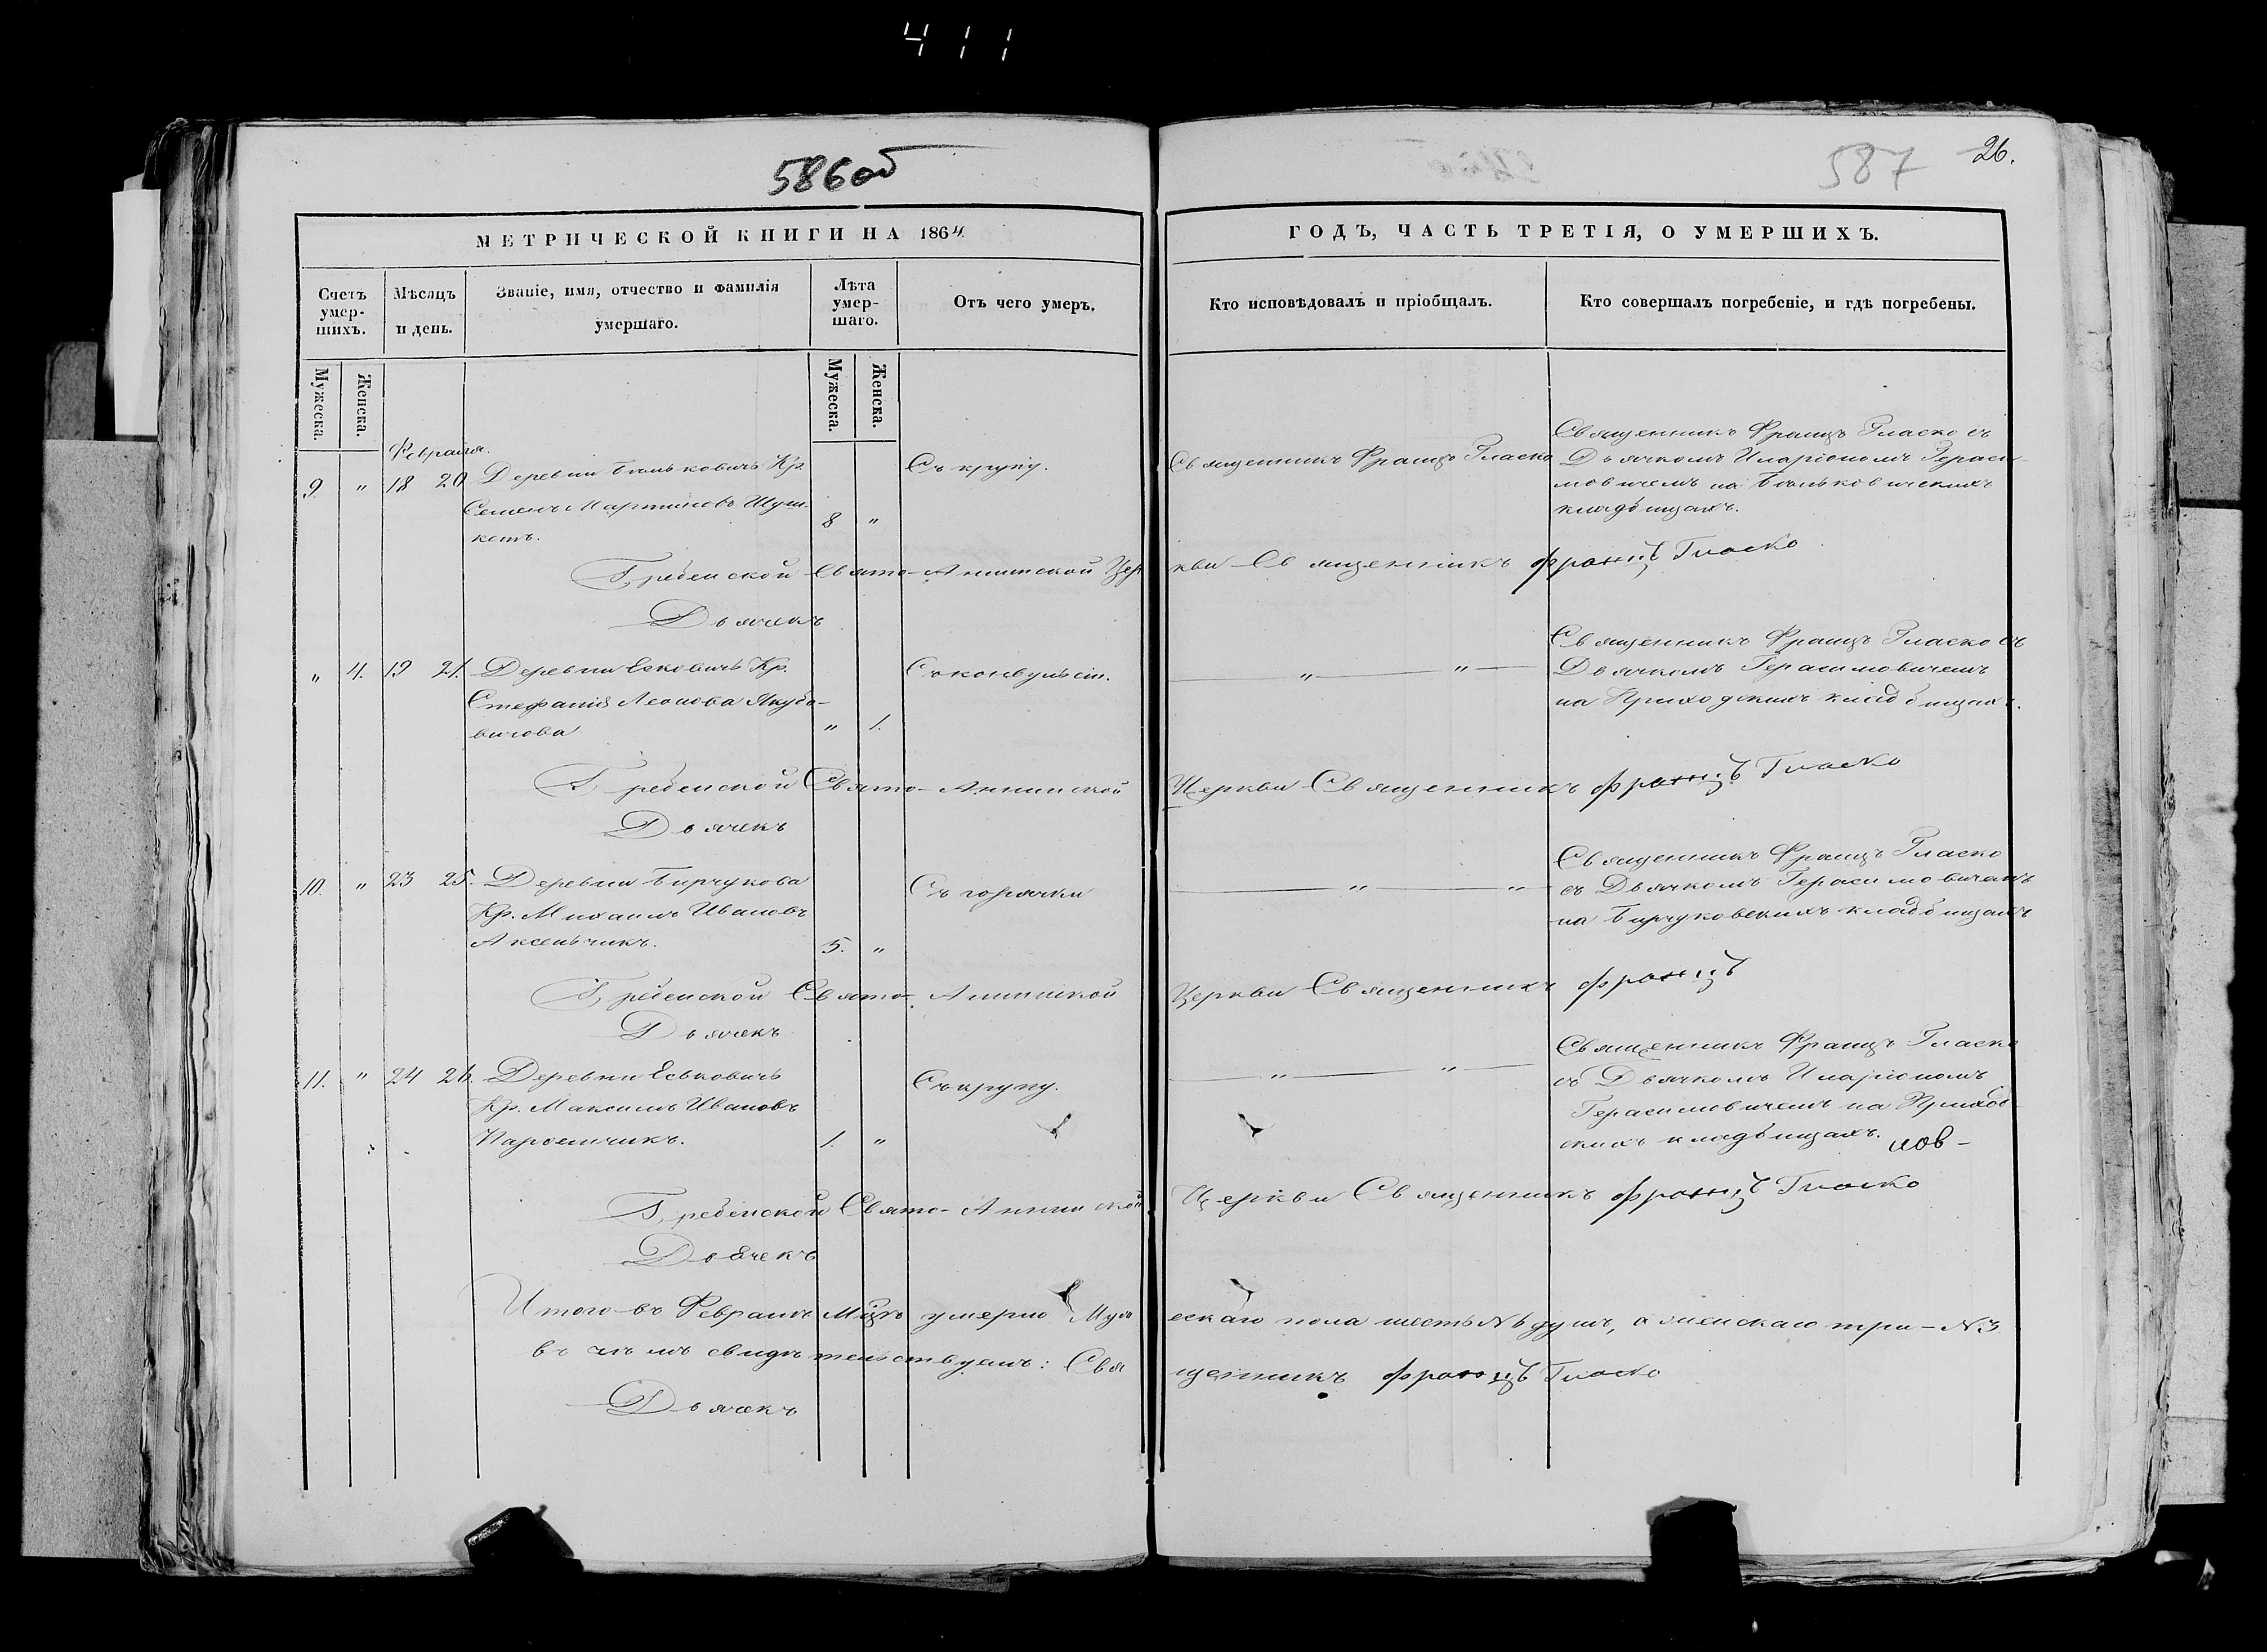 411
586об
587
26.
МЕТРИЧЕСКОЙ КНИГИ НА 1864.
ГОДЪ, ЧАСТЬ ТРЕТІЯ, О УМЕРШИХЪ.
Счетъ умер-
шихъ.
Мѣсяцъ
и день.
Званіе, имя, отчество и фамилія
умершаго.
Лѣта
умер-
шаго.
Отъ чего умеръ.
Кто исповѣдовалъ и пріобщалъ.
Кто совершалъ погребеніе, и гдѣ погребены.
Мужеска.
Женска.
Мужеска.
Женска.
Февраля.
9 " 18 20 Деревни Кр.
Семенъ Мартиновъ Шуш-
кетъ.
8 "
Съ крупу.
Священникъ Францъ Гласко
Священникъ Францъ Гласко съ
Дьячкомъ Иларіономъ Гераси-
мовичемъ на
кладбищахъ.
Гребенской Свято-Аннинской Церкви Священникъ Францъ Гласко
Дьячекъ
" 4. 19 21. Деревни Кр.
Стефанія Леонова Якубо-
вичова
" 1.
Съ конвульсіи.
" "
Священникъ Францъ Гласко съ
Дьячкомъ Герасимовичемъ
на Приходскихъ кладбищахъ.
Гребенской Свято-Аннинской Церкви Священникъ Францъ Гласко
Дьячекъ
10. " 23 25. Деревни Бирчукова
Кр. Михаилъ Ивановъ
Аксенчикъ.
5. "
Съ горячки
" "
Священникъ Францъ Гласко
съ Дьячкомъ Герасимовичемъ
на Бирчуковскихъ кладбищахъ
Гребенской Свято-Аннинской Церкви Священникъ Францъ
Дьячекъ
11. " 24 26. Деревни Евковичъ
Кр. Максимъ Ивановъ
1. "
Съ крупу.
" "
Священникъ Францъ Гласко
съ Дьячкомъ Иларіономъ
Герасимовичемъ на Приход-
скихъ кладбищахъ.
Гребенской Свято-Аннинской Церкви Священникъ Францъ Гласко
Дьячекъ
Итого въ Февралѣ Мцѣ умерло Мужескаго пола шесть №6 душъ, а женскаго три - №3
въ чемъ свидѣтельствуемъ: Священникъ Францъ Гласко
Дьячекъ